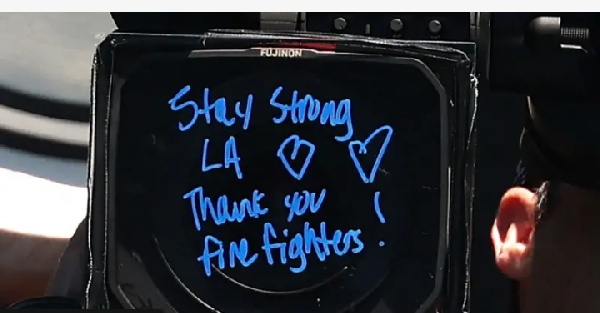 FUJINON
Stay Strong
LA ♡ ♡
Thank you !
fire fighters